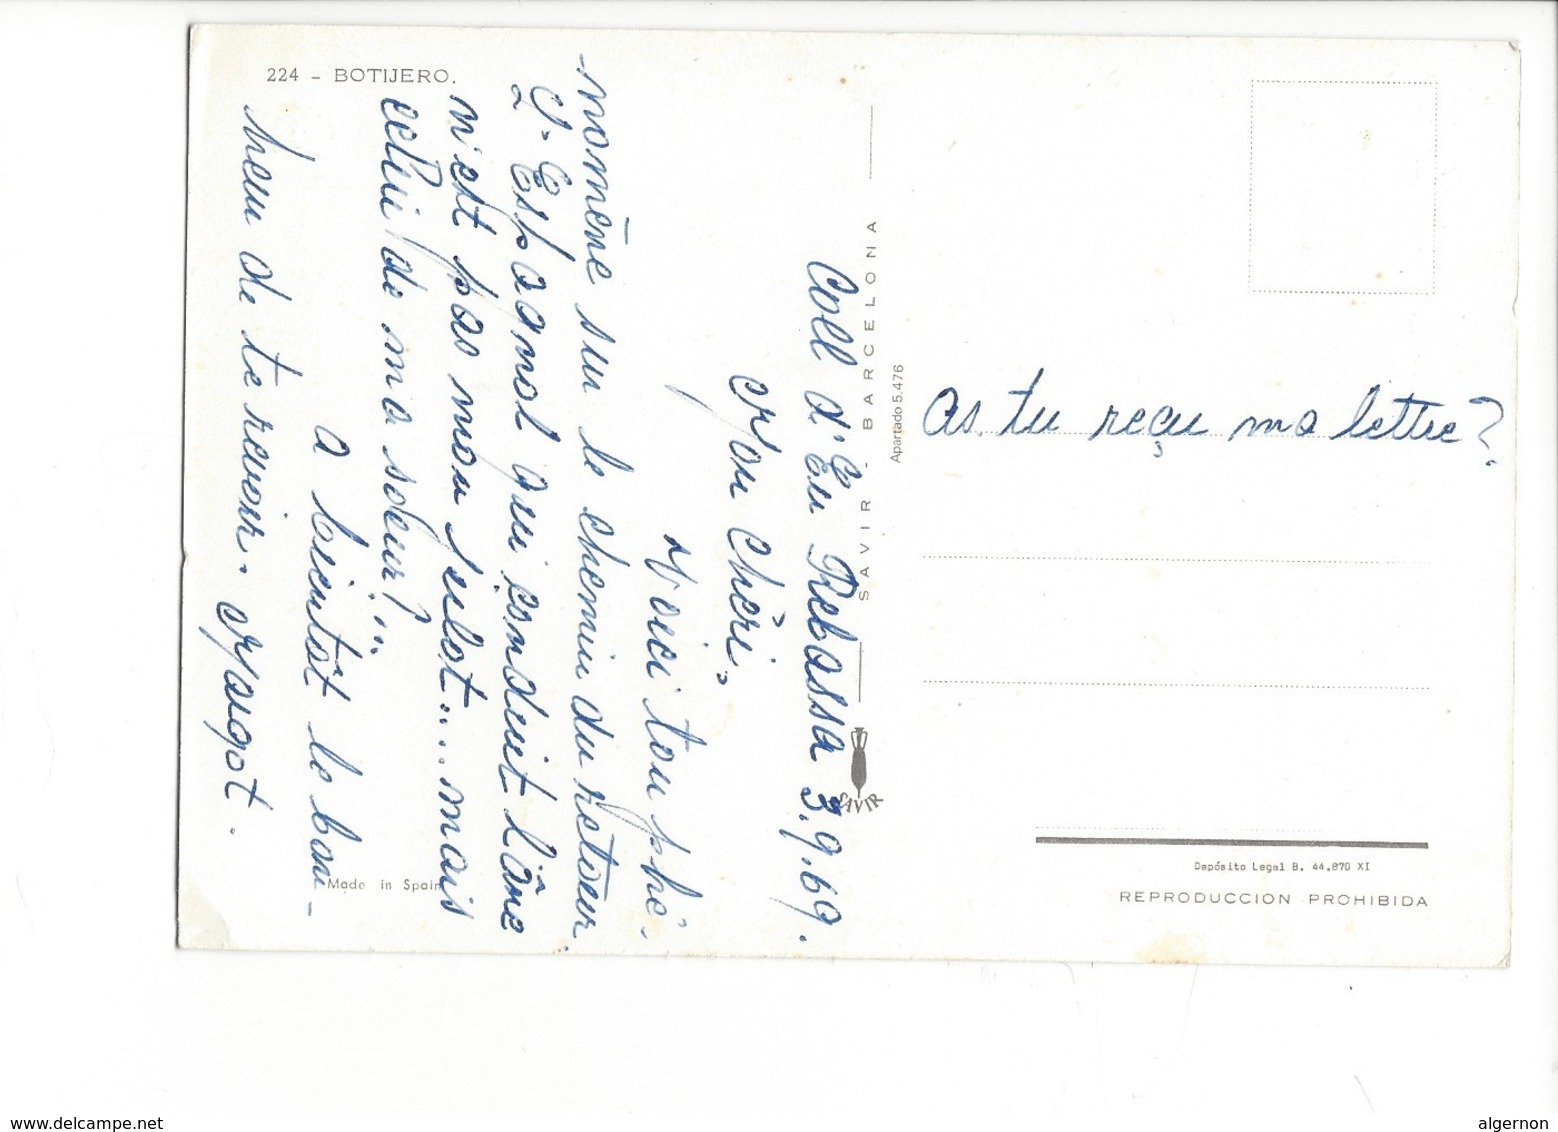 224 - BOTIJERO.
Coll d'En Rebassa 3.9.69.
Mon chèri,
Voici ton phé-
-nomène sur le chemin du retour.
L'Espagnol qui conduit l'âne
n'est pas mon julot.... mais
celui de ma sœur!...
a bientôt le bon-
heur de te revoir. Margot.
Made in Spain
SAVIR - BARCELONA
Apartado 5.476
SAVIR
as. tu reçu ma lettre?
Depósito Legal B. 44.870 XI
REPRODUCCION PROHIBIDA
www.delcampe.net
algernon